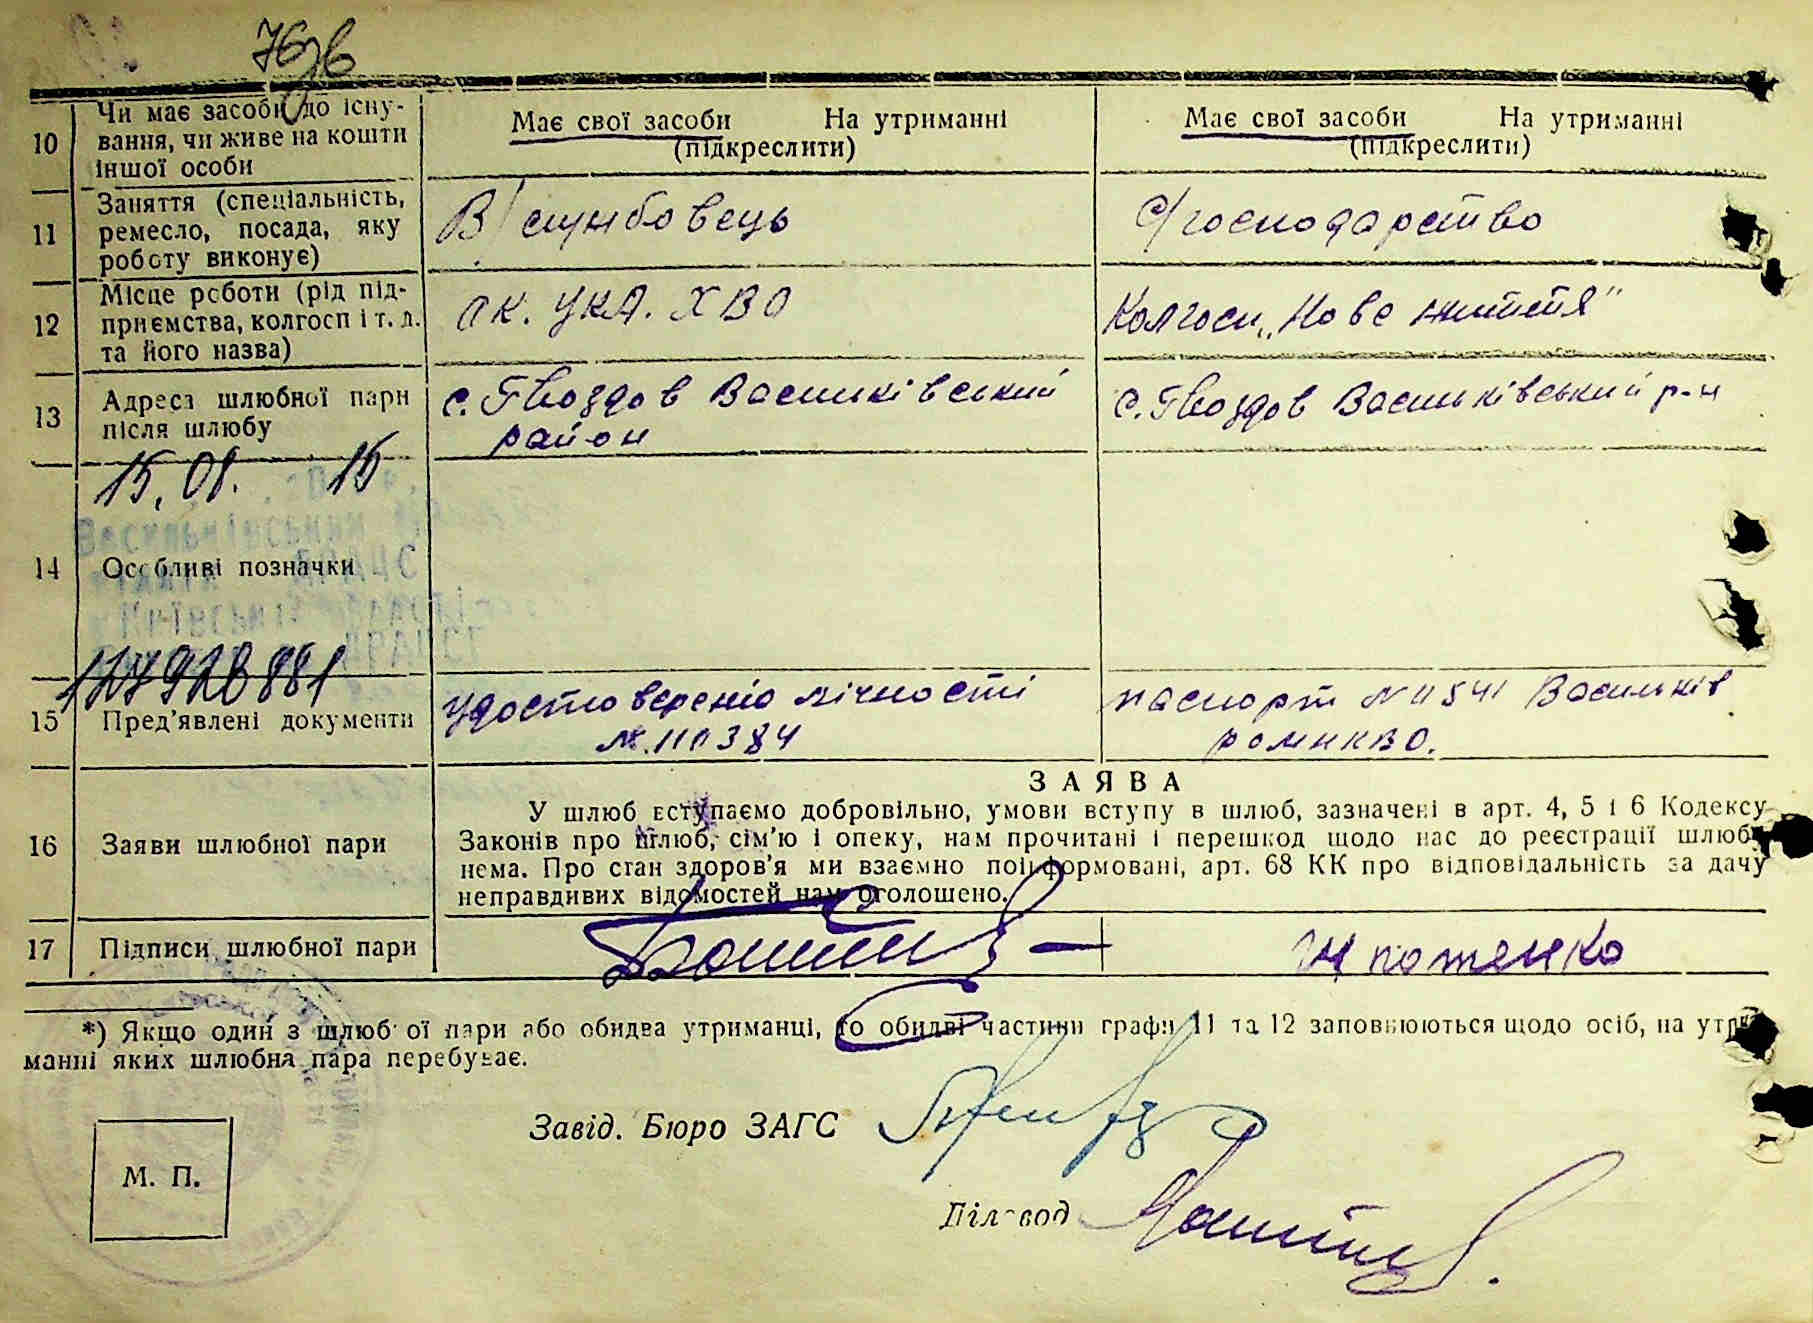 10 Чи має засоби до існу-
вання, чи живе на кошти
іншої особи
Має свої засоби На утриманні
(підкреслити)
Має свої засоби На утриманні
(підкреслити)
11 Заняття (спеціальність,
ремесло, посада, яку
роботу виконує)
В/службовець
С/господарство
12 Місце роботи (рід під-
приємства, колгосп і т. д.
та його назва)
ХВО
Колгосп „Нове життя"
13 Адреса шлюбної пари
після шлюбу
с. Гвоздов Васильківський
район
с. Гвоздов Васильківський р-н
15.01. 15
14 Особливі позначки
127928881
15 Пред'явлені документи
Удостовереніо лічності
№ 110384
паспорт N 11541 Васильків
16 Заяви шлюбної пари
ЗАЯВА
У шлюб вступаємо добровільно, умови вступу в шлюб, зазначені в арт. 4, 5 і 6 Кодексу
Законів про шлюб, сім'ю і опеку, нам прочитані і перешкод щодо нас до реєстрації шлюбу
нема. Про стан здоров'я ми взаємно поінформовані, арт. 68 КК про відповідальність за дачу
неправдивих відомостей нам оголошено.
17 Підписи шлюбної пари
*) Якщо один з шлюбної пари або обидва утриманці, то обидві частини графи 11 та 12 заповнюються щодо осіб, на утри-
манні яких шлюбна пара перебуває.
Завід. Бюро ЗАГС
М. П.
Діловод